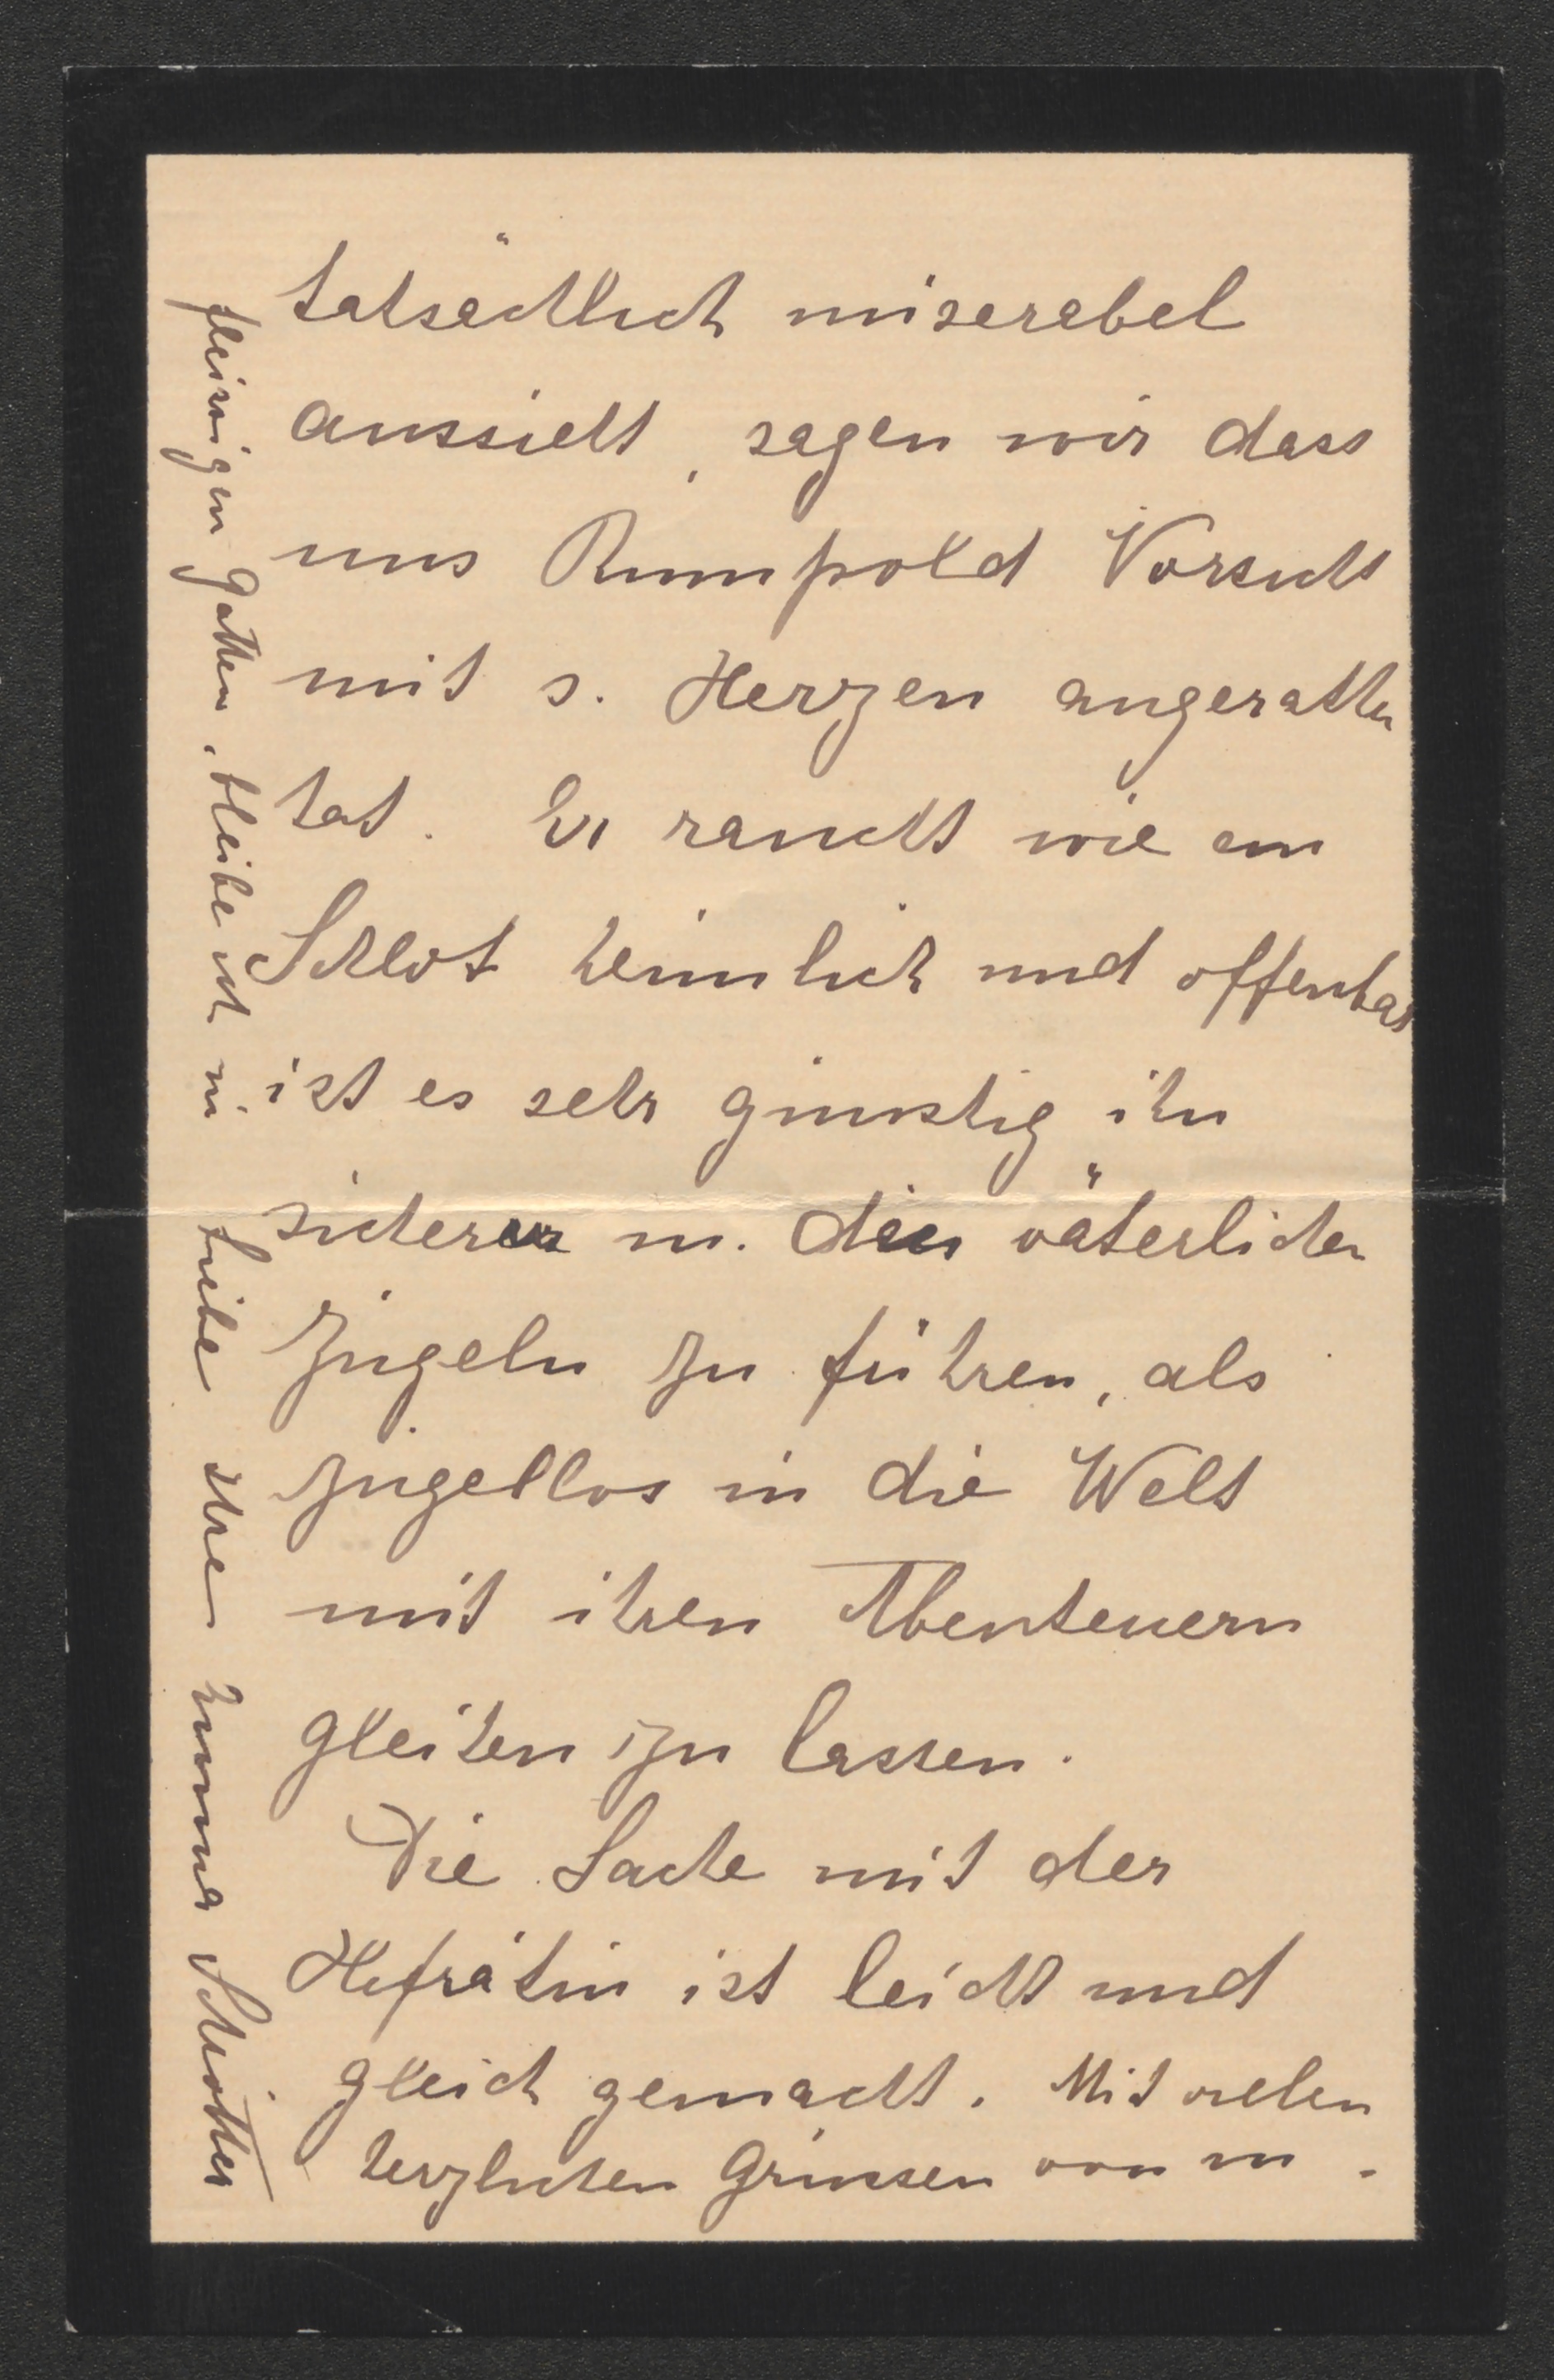 tatsächlich miserabel
aussieht, sagen wir dass
uns Rumpold Vorsicht
mit s. Herzen angerathen
hat. Er raucht wie ein
Schlot heimlich und offenbar
ist es sehr günstig ihn
sicherer m. den väterlichen
Zügeln zu führen, als
zügellos in die Welt
mit ihren Abenteuern
gleiten zu lassen.
Die Sache mit der
Hofrätin ist leicht und
gleich gemacht. Mit vielen
herzlichen Grüssen von m.
fleissigen Gatten, bleibe ich in
Liebe Ihre Emma Schrötter